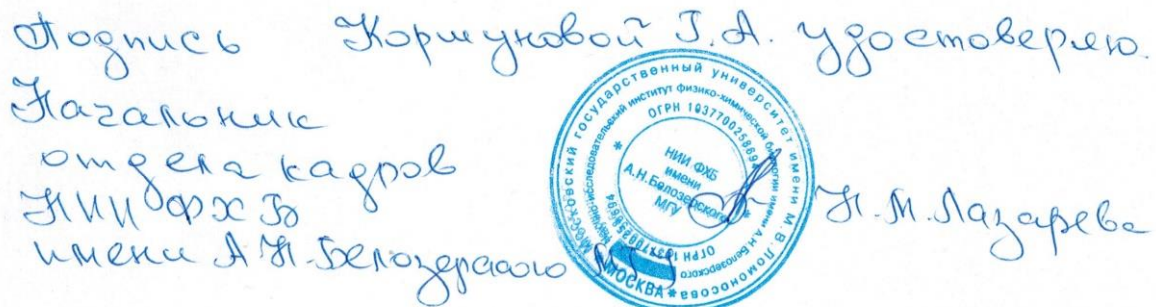 Подпись Коршуновой Г.А. удостоверяю.
Начальник
отдела кадров
НИИ ФХБ
имени А.Н.Белозерского МГУ
Н.М.Лазарева
МОСКОВСКИЙ ГОСУДАРСТВЕННЫЙ УНИВЕРСИТЕТ ИМЕНИ М.В.ЛОМОНОСОВА
Научно-исследовательский институт физико-химической биологии имени А.Н.Белозерского
ОГРН 1037700258694
НИИ ФХБ
имени
А.Н.Белозерского
МГУ
ОГРН 1037700258694
МОСКВА